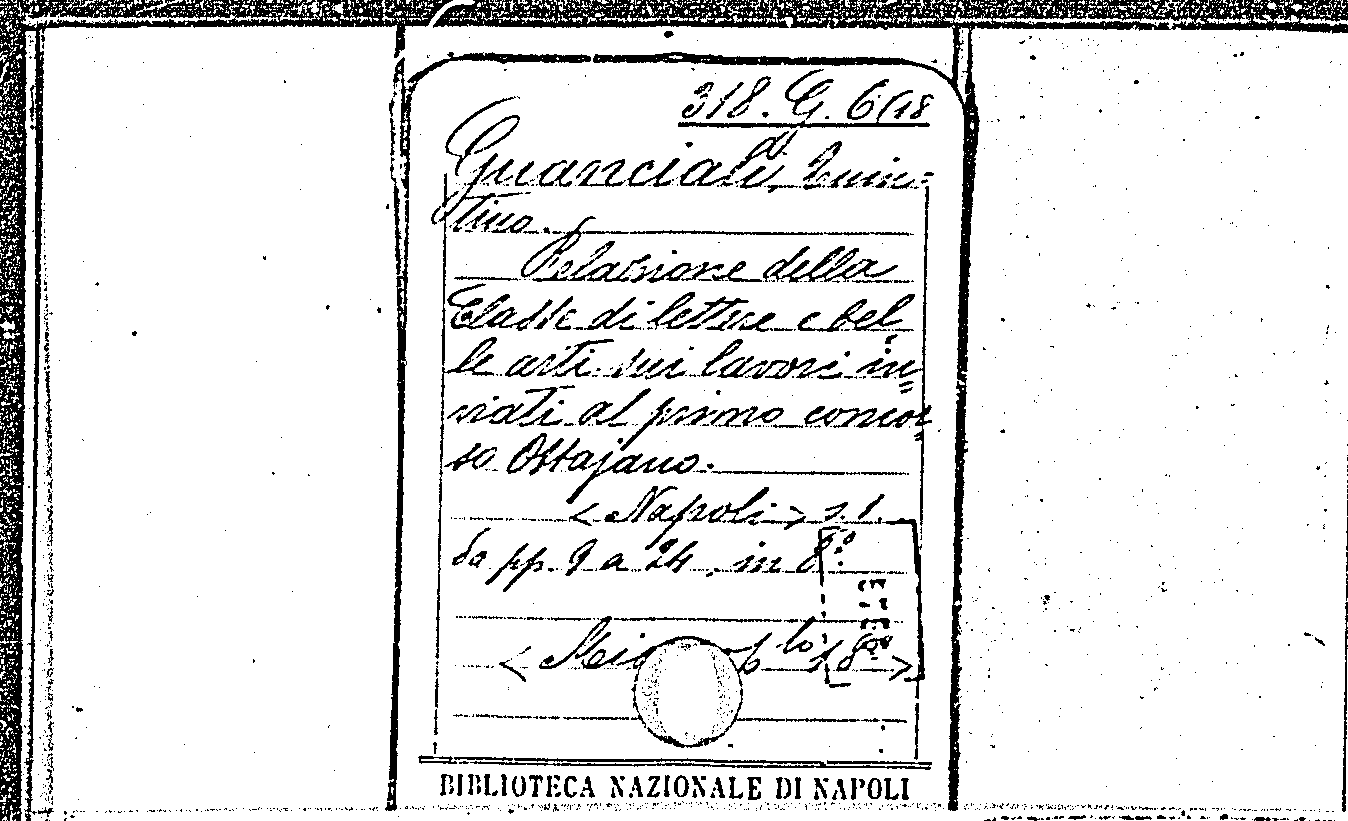 318. G. 6(18
Guanciali, Quin=
tino.
Relazione della
Classe di lettere e bel
le arti sui lavori in=
viati al primo concor=
so Ottajano.
<Napoli> s. t.
da pp. 9 a 24, in 8.º
BIBLIOTECA NAZIONALE DI NAPOLI